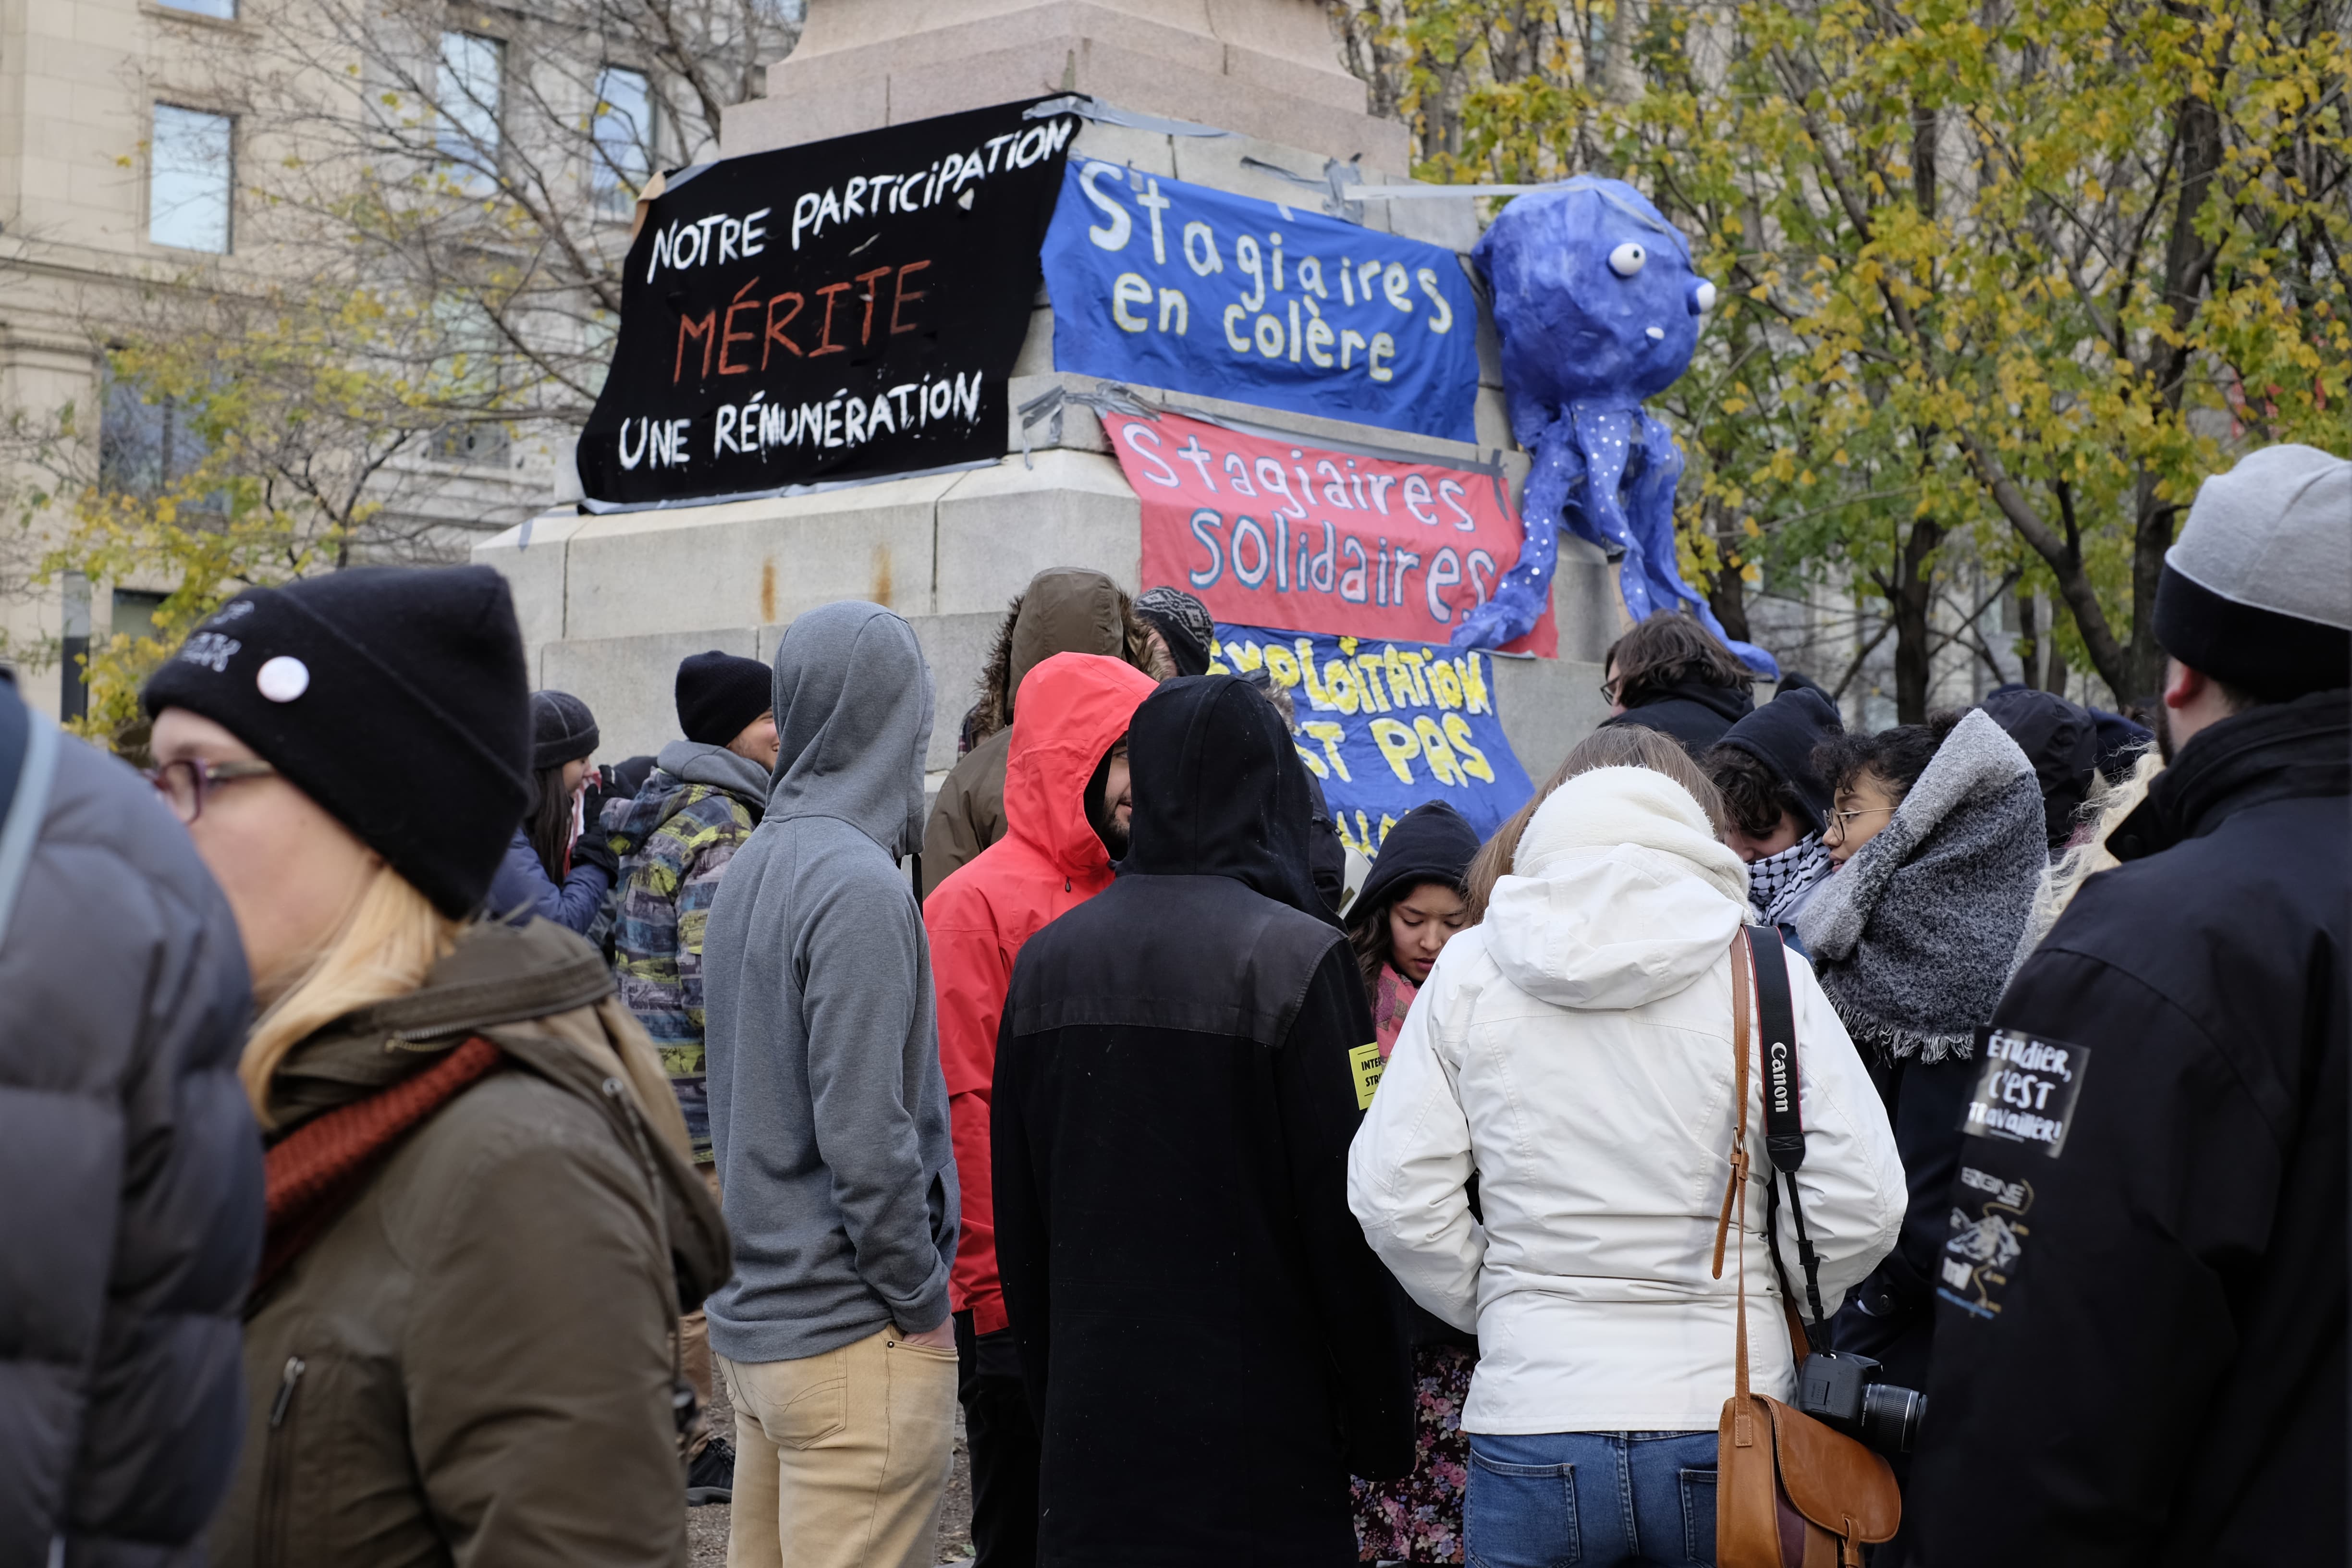 NOTRE PARTICIPATION
MÉRITE
UNE RÉMUNÉRATION
Stagiaires
en colère
Stagiaires
solidaires
EXPLOITATION
PAS
Canon
Étudier,
C'EST
travailler!